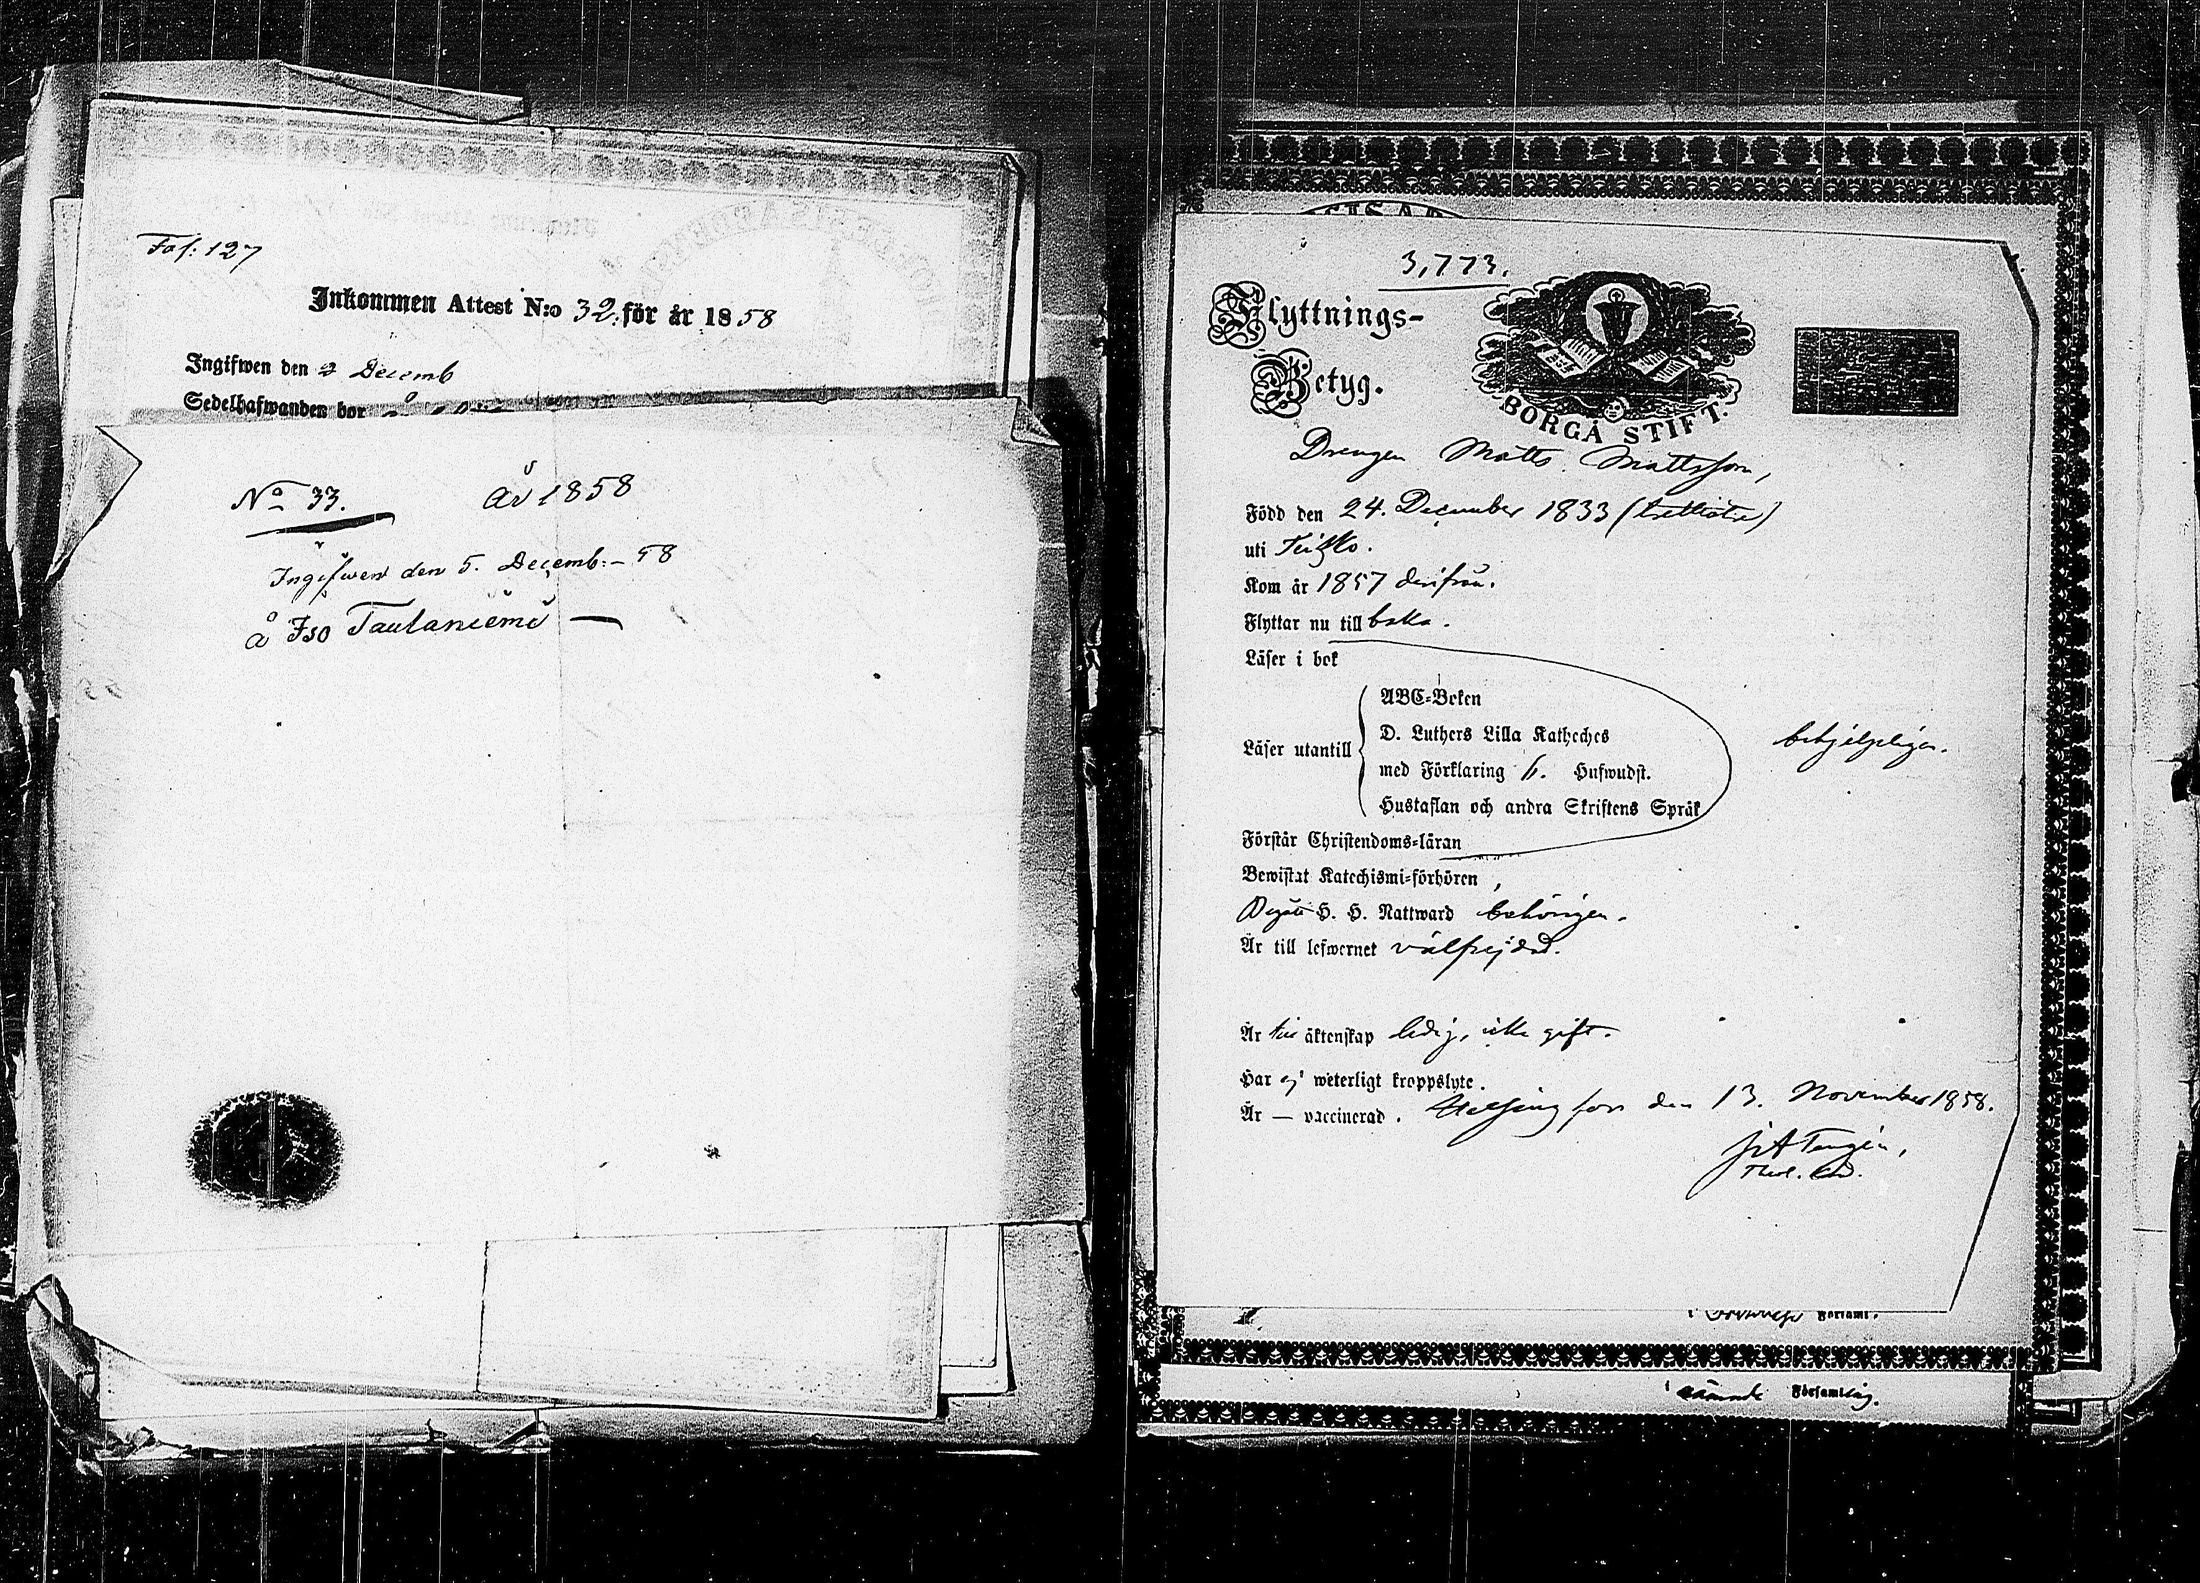 Fol: 127
Inkommen Attest N:o 32. för år 1858
Ingifwen den 2 Decemb
Sedelhafwanden bor å
No 33. År 1858
Ingifwen den 5. Decemb: - 58
å Iso Tautaniemi —
3,773.
Flyttnings-
Betyg.
BORGÅ STIFT.
Drengen Matts Mattsson,
Född den 24. December 1833 (trettiotre)
uti Teisko.
Kom år 1857 derifrån.
Flyttar nu till baka.
Läser i bok
ABC-Boken
D. Luthers Lilla Katheches
Läser utantill
med Förklaring 6. Hufwudst.
Hustaflan och andra Skriftens Språk
behjelpligen.
Förstår Christendoms-läran
Bewistat Katechismi-förhören,
Begått H. H. Nattward behörigen.
Är till lefwernet välfrejdad.
Är till äktenskap ledig, icke gift.
Har ej weterligt kroppslyte.
Är — vaccinerad. Helsingfors den 13. November 1858.
Theol. Cand.
i Församl.
i nämnde Församling.